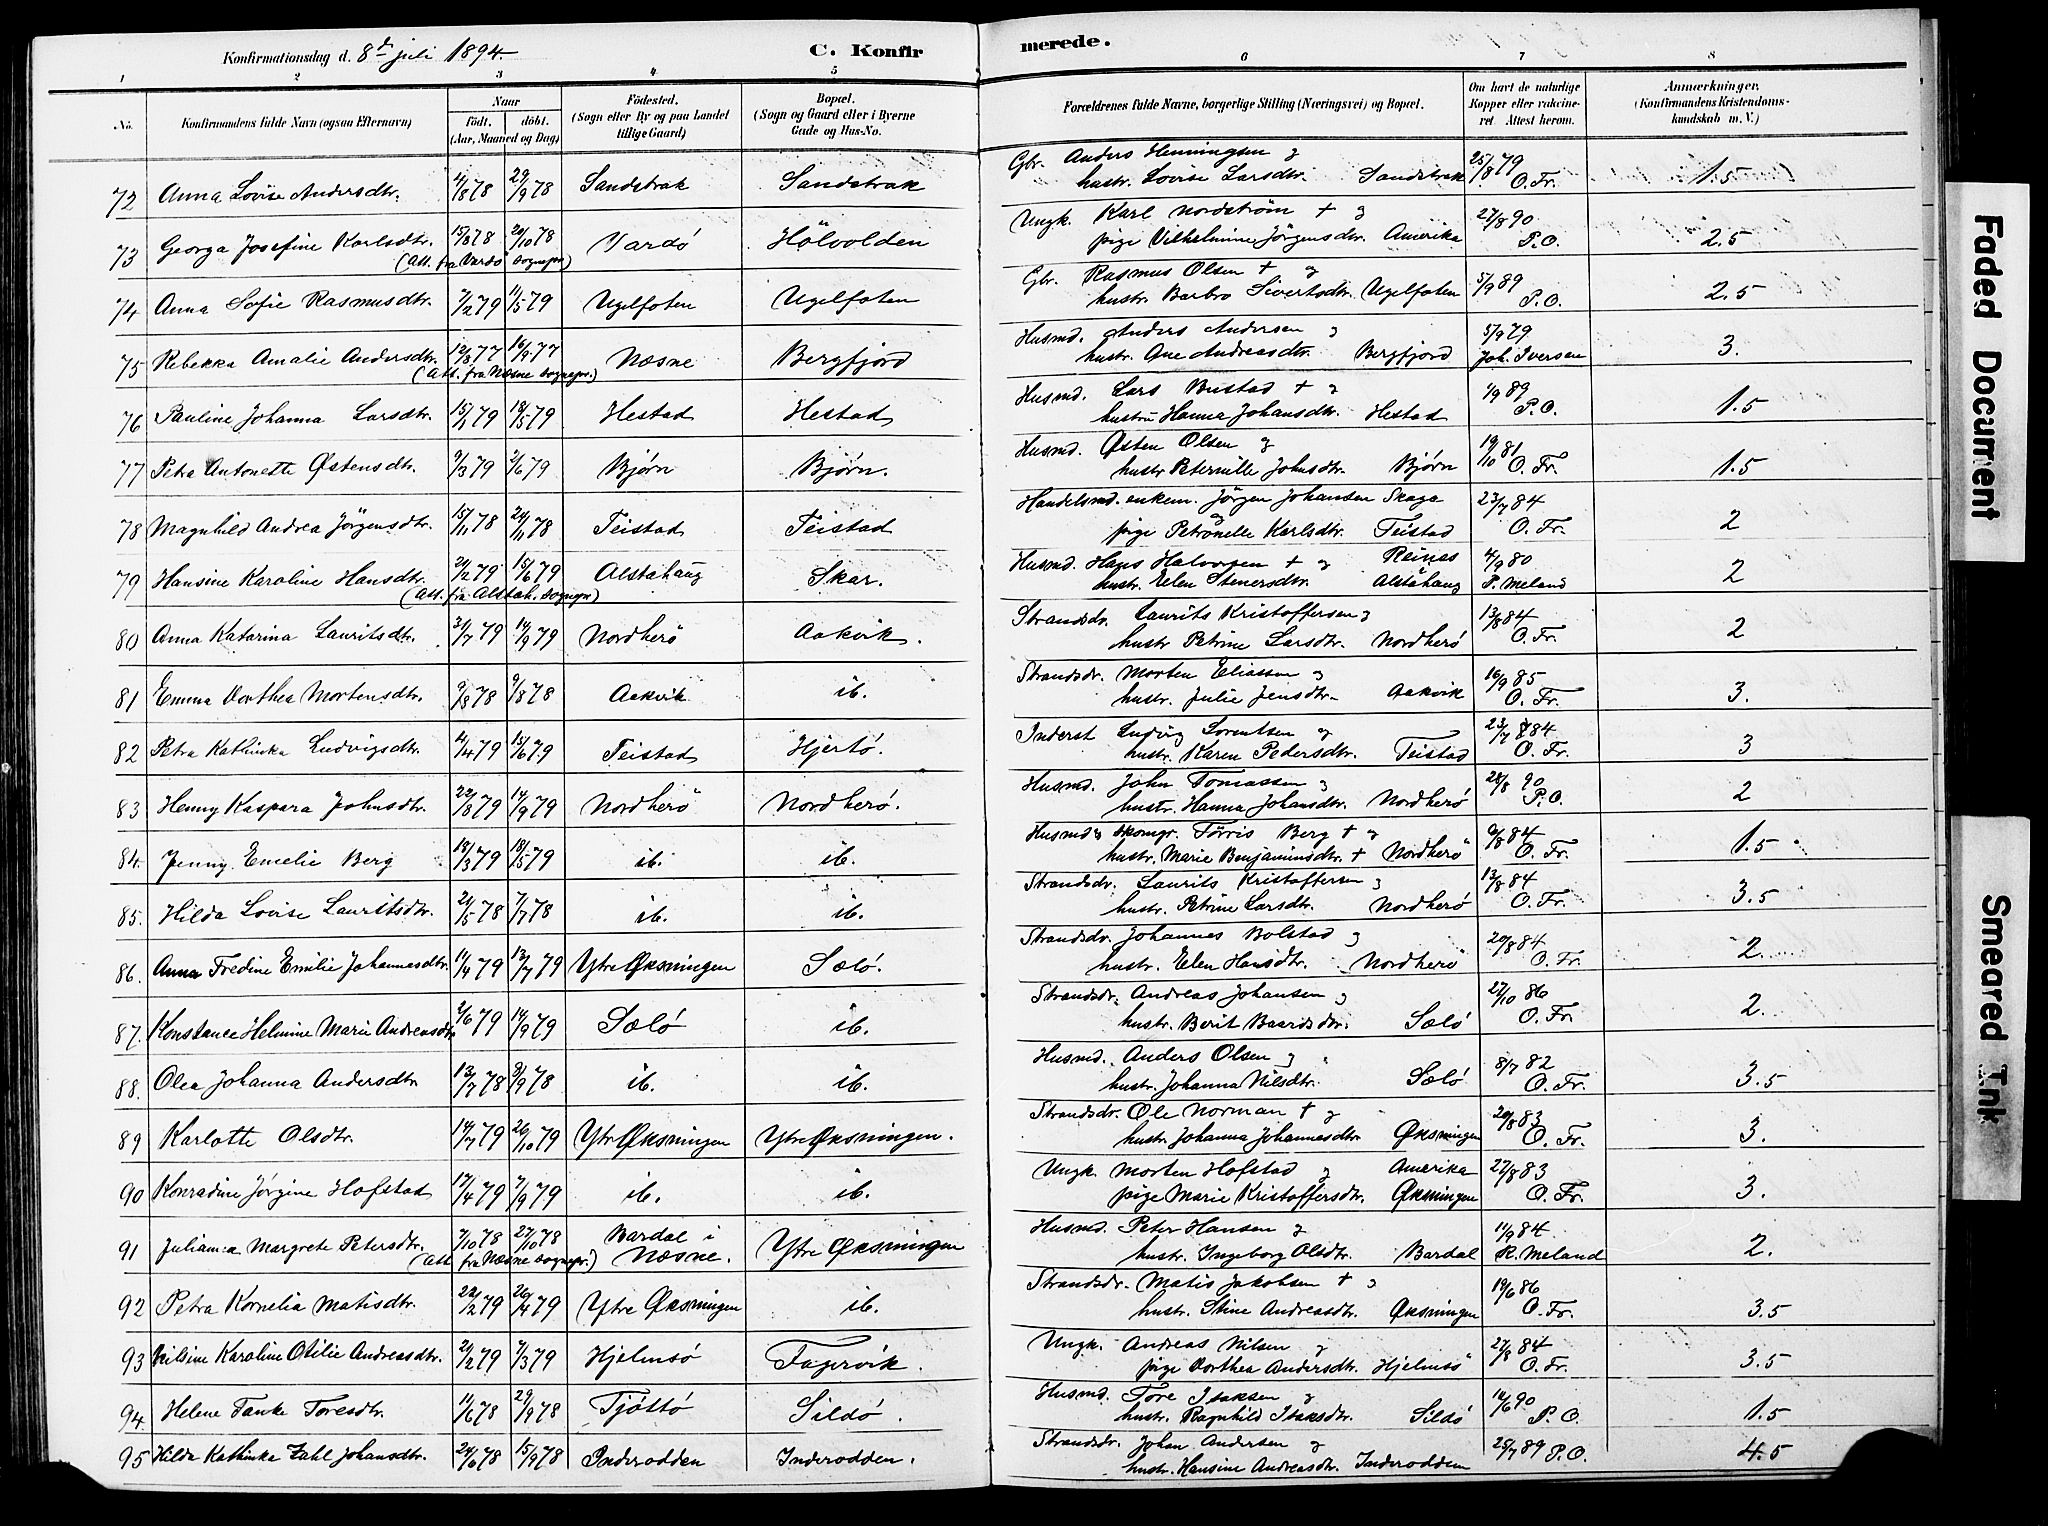 Konfirmationsdag d. 8de juli 1894.
C. Konfirmerede.
1 2 3 4 5 6 7 8
No. Konfirmandens fulde Navn (ogsaa Efternavn) Naar født. døbt. (Aar, Maaned og Dag) Fødested. (Sogn eller By og paa Landet tillige Gaard) Bopæl. (Sogn og Gaard eller i Byerne Gade og Hus-No. Forældrenes fulde Navne, borgerlige Stilling (Næringsvei) og Bopæl. Om havt de naturlige Kopper eller vakcineret. Attest herom. Anmærkninger. (Konfirmandens Kristendomskundskab m. V.)
72 Anna Lovise Andersdtr. 4/8 78 29/9 78 Sandstrak Sandstrak Gbr. Anders Henningsen og 25/8 79
hustr. Lovise Larsdtr. Sandstrak O. Fr. 1.5
73 Georga Josefine Karlsdtr. 15/8 78 20/10 78 Vardö Hölvolden Ungk. Karl Nordstrøm + og 27/8 90
(Att. fra Vardö sognepr.) pige Vilhelmine Jörgensdtr. Amerika P.O. 2.5
74 Anna Sofie Rasmusdtr. 7/2 79 11/5 79 Ugelfoten Ugelfoten Gbr. Rasmus Olsen + og 5/9 89
hustr. Barbro Sivertsdtr. Ugelfoten P.O. 2.5
75 Rebekka Amalie Andersdtr. 12/8 77 16/9 77 Næsne Bergfjord Husmd. Anders Andersen og 5/9 79
(Att. fra Næsne sognepr.) hustr. Ane Andreasdtr. Bergfjord Joh. Iversen 3.
76 Pauline Johanna Larsdtr. 15/1 79 18/5 79 Hestad Hestad Husmd. Lars Bustad + og 1/9 89
hustru Hanna Johansdtr. Hestad P.O. 1.5
77 Petra Antonette Østensdtr. 9/3 79 2/6 79 Bjørn Bjørn. Husmd. Østen Olsen og 19/10 81
hustr. Peternille Johnsdtr. Bjørn O. Fr. 1.5
78 Magnhild Andrea Jörgensdtr. 15/11 78 24/11 78 Teistad Teistad Handelsmd. enkem. Jörgen Johansen Skaga 23/7 84
og pige Petronelle Karlsdtr. Teistad O. Fr. 2
79 Hansine Karoline Hansdtr. 21/2 79 15/6 79 Alstahaug Skar. Husmd. Hans Halvorsen + og Reines 4/9 80
(Att. fra Alstah. sognepr) hustr. Elen Stenersdtr. Alstahaug P. Meland 2
80 Anna Katarina Lauritsdtr. 31/7 79 14/9 79 Nordherö Aakvik. Strandsdr. Laurits Kristoffersen og 13/8 84
hustr. Petrine Larsdtr. Nordherö O. Fr. 2
81 Emma Dorthea Mortensdtr. 9/3 78 9/8 78 Aakvik ib. Strandsdr. Morten Eliassen og 16/9 85
hustr. Julie Jensdtr. Aakvik O. Fr. 3.
82 Petra Kathinka Ludvigsdtr. 4/4 79 15/6 79 Teistad Hjertö. Inderst Ludvig Lorentsen og 23/7 84
hustr. Karen Pedersdtr. Teistad O. Fr. 3
83 Henny Kaspara Johnsdtr. 22/8 79 14/9 79 Nordherö Nordherö. Husmd. John Tomassen og 28/8 90
hustr. Hanna Johansdtr. Nordherö P.O. 2
84. Jenny Emelie Berg 18/3 79 18/5 79 ib. ib. Husmd og skomgr. Tørris Berg + og 9/8 84
hustr. Marie Benjaminsdtr. + Nordherö O. Fr. 1.5
85. Hilda Lovise Lauritsdtr. 21/5 78 7/7 78 ib. ib. Strandsdr. Laurits Kristoffersen og 13/8 84
hustr. Petrine Larsdtr. Nordherö O. Fr. 3.5
86. Anna Fredine Emilie Johannesdtr. 11/4 79 13/7 79 Ytre Øksningen Sælö. Strandsdr. Johannes Bolstad og 20/8 84
hustr. Elen Hansdtr. Nordherö O. Fr. 2.
87. Konstance Helmine Marie Andreasdtr. 2/6 79 14/9 79 Sælö ib. Strandsdr. Andreas Johansen og 27/10 86
hustr. Berit Baardsdtr. Sælö O. Fr. 2.
88. Olea Johanna Andersdtr 13/7 78 9/9 78 ib. ib. Husmd. Anders Olsen og 8/7 82
hustr. Johanna Nilsdtr. Sælö O. Fr. 3.5
89 Karlotte Olsdtr. 14/7 79 26/10 79 Ytre Øksningen Ytre Øksningen. Strandsdr. Ole Norman + og 20/8 83
hustr. Johanna Johannesdtr. Øksningen O. Fr. 3.
90 Konradine Jörgine Hofstad 17/4 79 7/9 79 ib. ib. Ungk. Morten Hofstad og Amerika 27/8 83
pige Marie Kristoffersdtr. Øksningen O. Fr. 3.
91 Julianna Margrete Petersdtr. 7/10 78 27/10 78 Bardal i Næsne. Ytre Øksningen Husmd. Peter Hansen og 11/9 84
(Att fra Næsne sognepr.) hustr. Ingeborg Olsdtr. Bardal R. Meland 2.
92 Petra Kornelia Matisdtr. 22/2 79 26/4 79 Ytre Øksningen ib. Strandsdr. Matis Jakobsen + og 19/6 86
hustr. Stine Andreasdtr. Øksningen O. Fr. 3.5
93 Nilsine Karoline Otilie Andreasdtr. 21/2 79 7/3 79 Hjelmsö Fagervik. Ungk. Andreas Nilsen og 27/8 84
pige Dorthea Andersdtr. Hjelmsö O. Fr. 3.5
94. Helene Tanke Toresdtr. 11/6 78 29/9 78 Tjöttö Sildö. Husmd. Tore Isaksen og 14/6 90
hustr. Ragnhild Isaksdtr. Sildö P.O. 1.5
95 Hilda Kathinka Zahl Johansdtr. 24/6 78 15/9 78 Inderodden Inderodden. Strandsdr. Johan Andersen og 25/7 89 P.O.
hustr. Hansine Andreasdtr. Inderodden 4.5
Faded Document
Smeared Ink